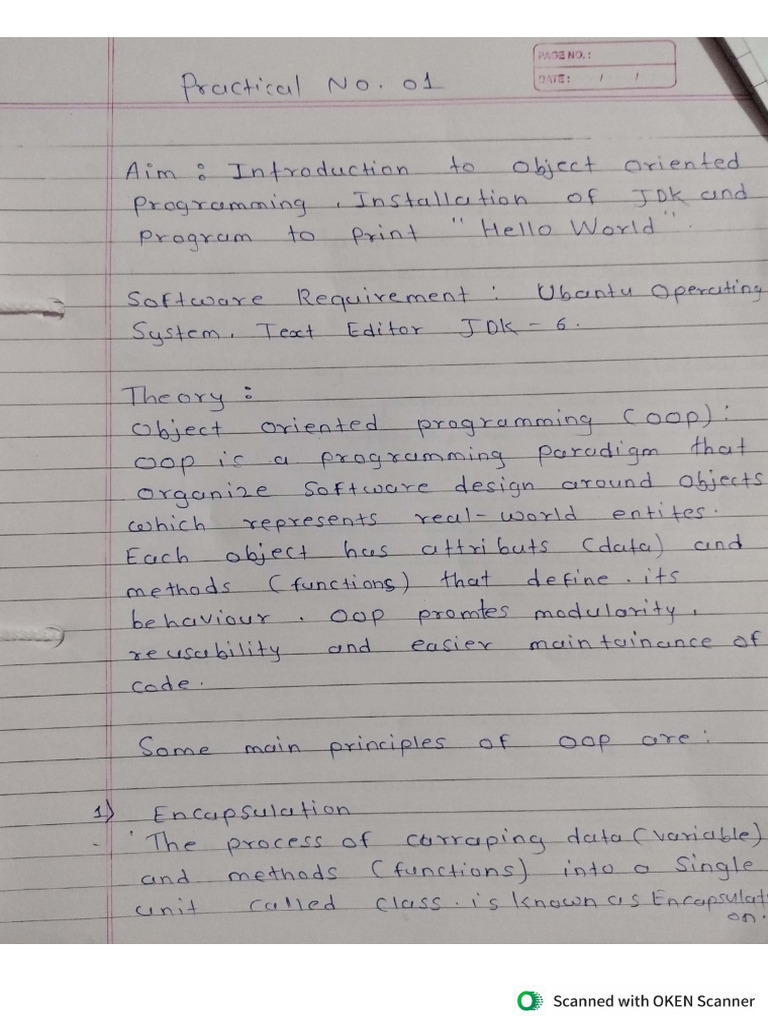 PAGE NO.:
DATE: / /
Practical No. 01
Aim : Introduction to object oriented
programming , Installation of JDK and
program to print "Hello World".
Software Requirement : Ubantu Operating
System, Text Editor JDK - 6.
Theory :
Object oriented programming (OOP):
OOP is a programming paradigm that
organize software design around objects
which represents real-world entites.
Each object has attributs (data) and
methods (functions) that define its
behaviour. OOP promtes modularity,
reusability and easier maintainance of
code.
Some main principles of OOP are:
1) Encapsulation
The process of data (variable)
and methods (functions) into a single
unit called class is known as Encapsulati
on.
Scanned with OKEN Scanner